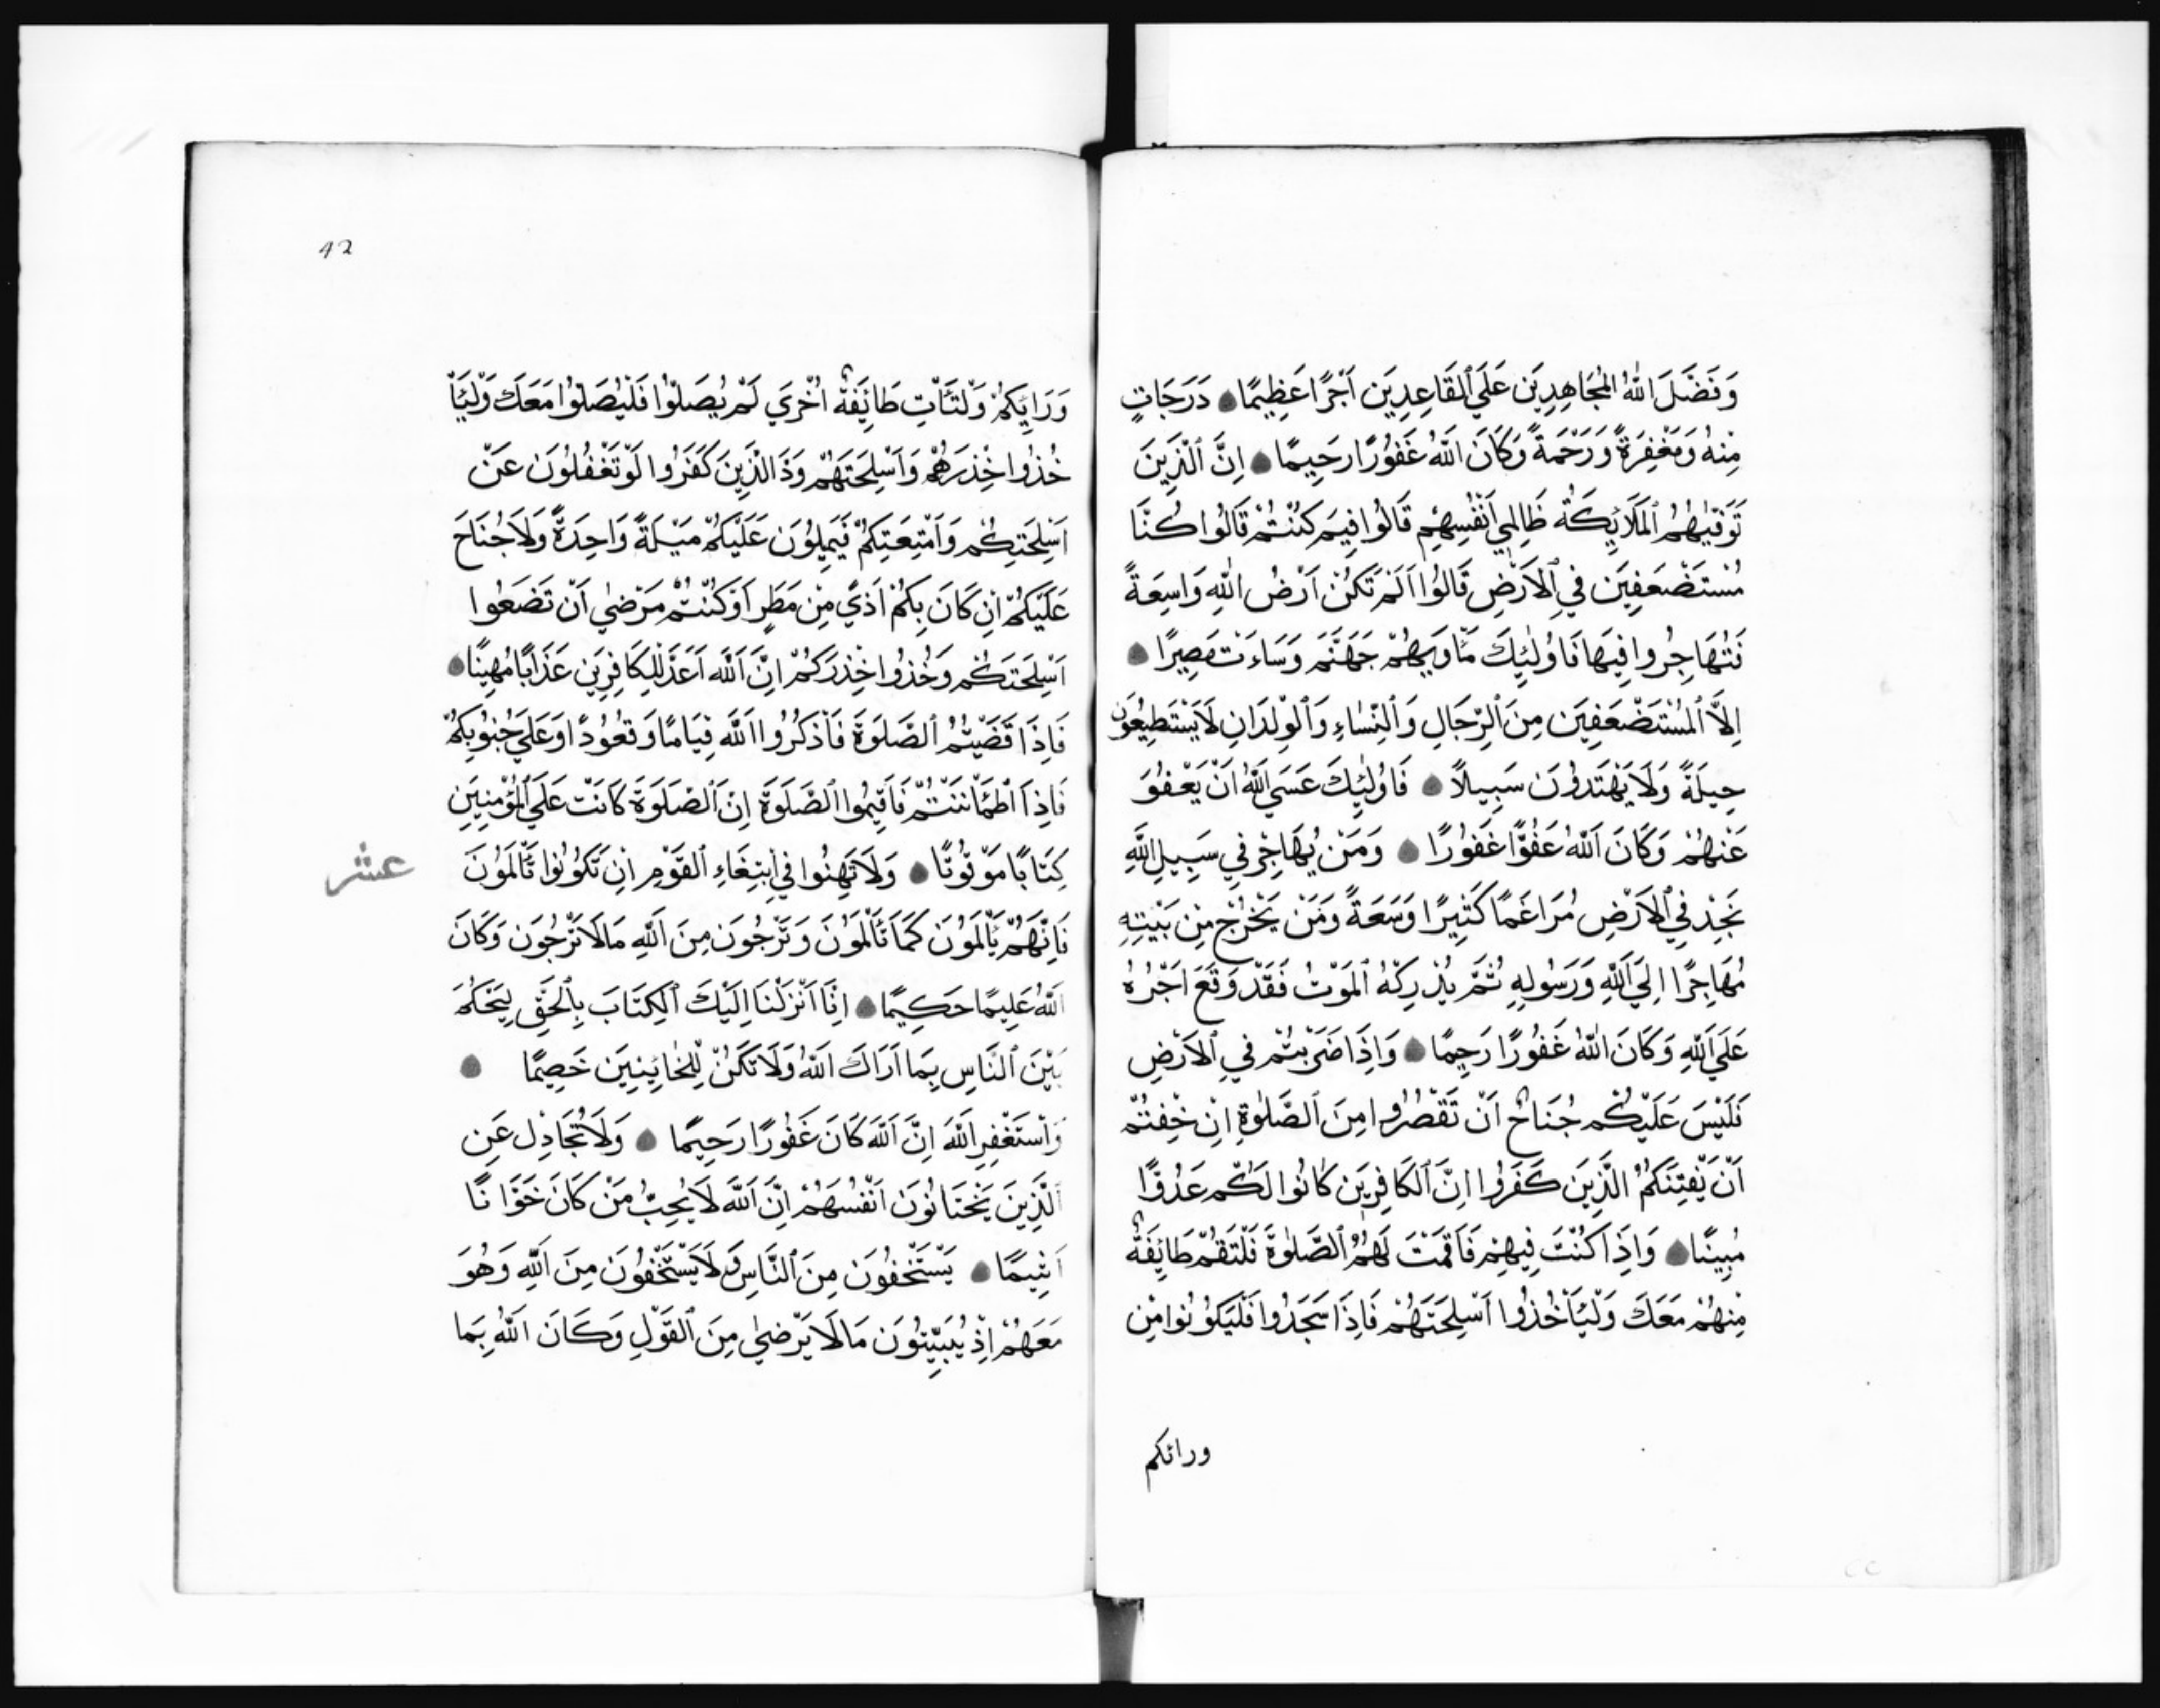 وَفَضَّلَ اللّٰهُ الْمُجَاهِدِينَ عَلَي الْقَاعِدِينَ اَجْرًا عَظِيمًا دَرَجَاتٍ
مِنْهُ وَمَغْفِرَةً وَرَحْمَةً وَكَانَ اللّٰهُ غَفُورًا رَحِيمًا اِنَّ الَّذِينَ
تَوَفّٰيهُمُ الْمَلَائِكَةُ ظَالِمِي اَنْفُسِهِمْ قَالُوا فِيمَ كُنْتُمْ قَالُوا كُنَّا
مُسْتَضْعَفِينَ فِي الْاَرْضِ قَالُوا اَلَمْ تَكُنْ اَرْضُ اللّٰهِ وَاسِعَةً
فَتُهَاجِرُوا فِيهَا فَاُولٰئِكَ مَاْوَيهُمْ جَهَنَّمَ وَسَاءَتْ مَصِيرًا
اِلَّا الْمُسْتَضْعَفِينَ مِنَ الرِّجَالِ وَالنِّسَاءِ وَالْوِلْدَانِ لَا يَسْتَطِيعُونَ
حِيلَةً وَلَا يَهْتَدُونَ سَبِيلًا فَاُولٰئِكَ عَسَي اللّٰهُ اَنْ يَعْفُوَ
عَنْهُمْ وَكَانَ اللّٰهُ عَفُوًّا غَفُورًا وَمَنْ يُهَاجِرْ فِي سَبِيلِ اللّٰهِ
يَجِدْ فِي الْاَرْضِ مُرَاغَمًا كَثِيرًا وَسَعَةً وَمَنْ يَخْرُجْ مِنْ بَيْتِهِ
مُهَاجِرًا اِلَي اللّٰهِ وَرَسُولِهِ ثُمَّ يُدْرِكْهُ الْمَوْتُ فَقَدْ وَقَعَ اَجْرُهُ
عَلَي اللّٰهِ وَكَانَ اللّٰهُ غَفُورًا رَحِيمًا وَاِذَا ضَرَبْتُمْ فِي الْاَرْضِ
فَلَيْسَ عَلَيْكُمْ جُنَاحٌ اَنْ تَقْصُرُوا مِنَ الصَّلٰوةِ اِنْ خِفْتُمْ
اَنْ يَفْتِنَكُمُ الَّذِينَ كَفَرُوا اِنَّ الْكَافِرِينَ كَانُوا لَكُمْ عَدُوًّا
مُبِينًا وَاِذَا كُنْتَ فِيهِمْ فَاَقَمْتَ لَهُمُ الصَّلٰوةَ فَلْتَقُمْ طَائِفَةٌ
مِنْهُمْ مَعَكَ وَلْيَاْخُذُوا اَسْلِحَتَهُمْ فَاِذَا سَجَدُوا فَلْيَكُونُوا مِنْ
ورائكم
42
وَرَائِكُمْ وَلْتَاْتِ طَائِفَةٌ اُخْرَي لَمْ يُصَلُّوا فَلْيُصَلُّوا مَعَكَ وَلْيَاْ
خُذُوا حِذْرَهُمْ وَاَسْلِحَتَهُمْ وَدَّ الَّذِينَ كَفَرُوا لَوْ تَغْفُلُونَ عَنْ
اَسْلِحَتِكُمْ وَاَمْتِعَتِكُمْ فَيَمِيلُونَ عَلَيْكُمْ مَيْلَةً وَاحِدَةً وَلَا جُنَاحَ
عَلَيْكُمْ اِنْ كَانَ بِكُمْ اَذًي مِنْ مَطَرٍ اَوْ كُنْتُمْ مَرْضٰي اَنْ تَضَعُوا
اَسْلِحَتَكُمْ وَخُذُوا حِذْرَكُمْ اِنَّ اللّٰهَ اَعَدَّ لِلْكَافِرِينَ عَذَابًا مُهِينًا
فَاِذَا قَضَيْتُمُ الصَّلَوةَ فَاذْكُرُوا اللّٰهَ قِيَامًا وَقُعُودًا وَعَلَي جُنُوبِكُمْ
فَاِذَا اطْمَاْنَنْتُمْ فَاَقِيمُوا الصَّلَوةَ اِنَّ الصَّلَوةَ كَانَتْ عَلَي الْمُؤْمِنِينَ
كِتَابًا مَوْقُوتًا وَلَا تَهِنُوا فِي ابْتِغَاءِ الْقَوْمِ اِنْ تَكُونُوا تَاْلَمُونَ
عشر
فَاِنَّهُمْ يَاْلَمُونَ كَمَا تَاْلَمُونَ وَتَرْجُونَ مِنَ اللّٰهِ مَا لَا تَرْجُونَ وَكَانَ
اللّٰهُ عَلِيمًا حَكِيمًا اِنَّا اَنْزَلْنَا اِلَيْكَ الْكِتَابَ بِالْحَقِّ لِيَحْكُمَ
بَيْنَ النَّاسِ بِمَا اَرَاكَ اللّٰهُ وَلَا تَكُنْ لِلْخَائِنِينَ خَصِيمًا
وَاسْتَغْفِرِ اللّٰهَ اِنَّ اللّٰهَ كَانَ غَفُورًا رَحِيمًا وَلَا تُجَادِلْ عَنِ
الَّذِينَ يَخْتَانُونَ اَنْفُسَهُمْ اِنَّ اللّٰهَ لَا يُحِبُّ مَنْ كَانَ خَوَّانًا
اَثِيمًا يَسْتَخْفُونَ مِنَ النَّاسِ وَلَا يَسْتَخْفُونَ مِنَ اللّٰهِ وَهُوَ
مَعَهُمْ اِذْ يُبَيِّتُونَ مَا لَا يَرْضٰي مِنَ الْقَوْلِ وَكَانَ اللّٰهُ بِمَا